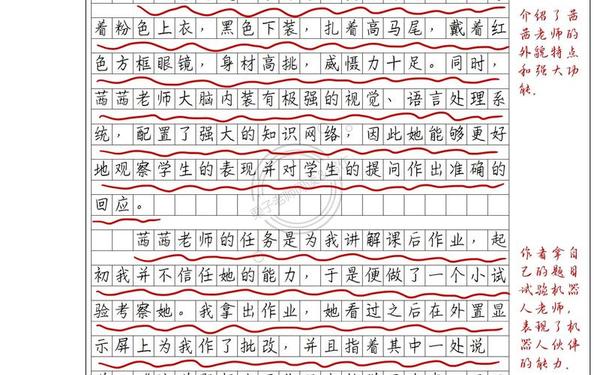 着粉色上衣，黑色下装，扎着高马尾，戴着红
色方框眼镜，身材高挑，威慑力十足。同时，
茜茜老师大脑内装有极强的视觉、语言处理系
统，配置了强大的知识网络，因此她能够更好
地观察学生的表现并对学生的提问作出准确的
回应。
茜茜老师的任务是为我讲解课后作业，起
初我并不信任她的能力，于是便做了一个小试
验考察她。我拿出作业，她看过之后在外置显
示屏上为我作了批改，并且指着其中一处说
介绍了茜
茜老师的
外貌特点
和强大功
能。
作者拿自
己的题目
试验机器
人老师，
表现了机
器人伙伴
的能力。